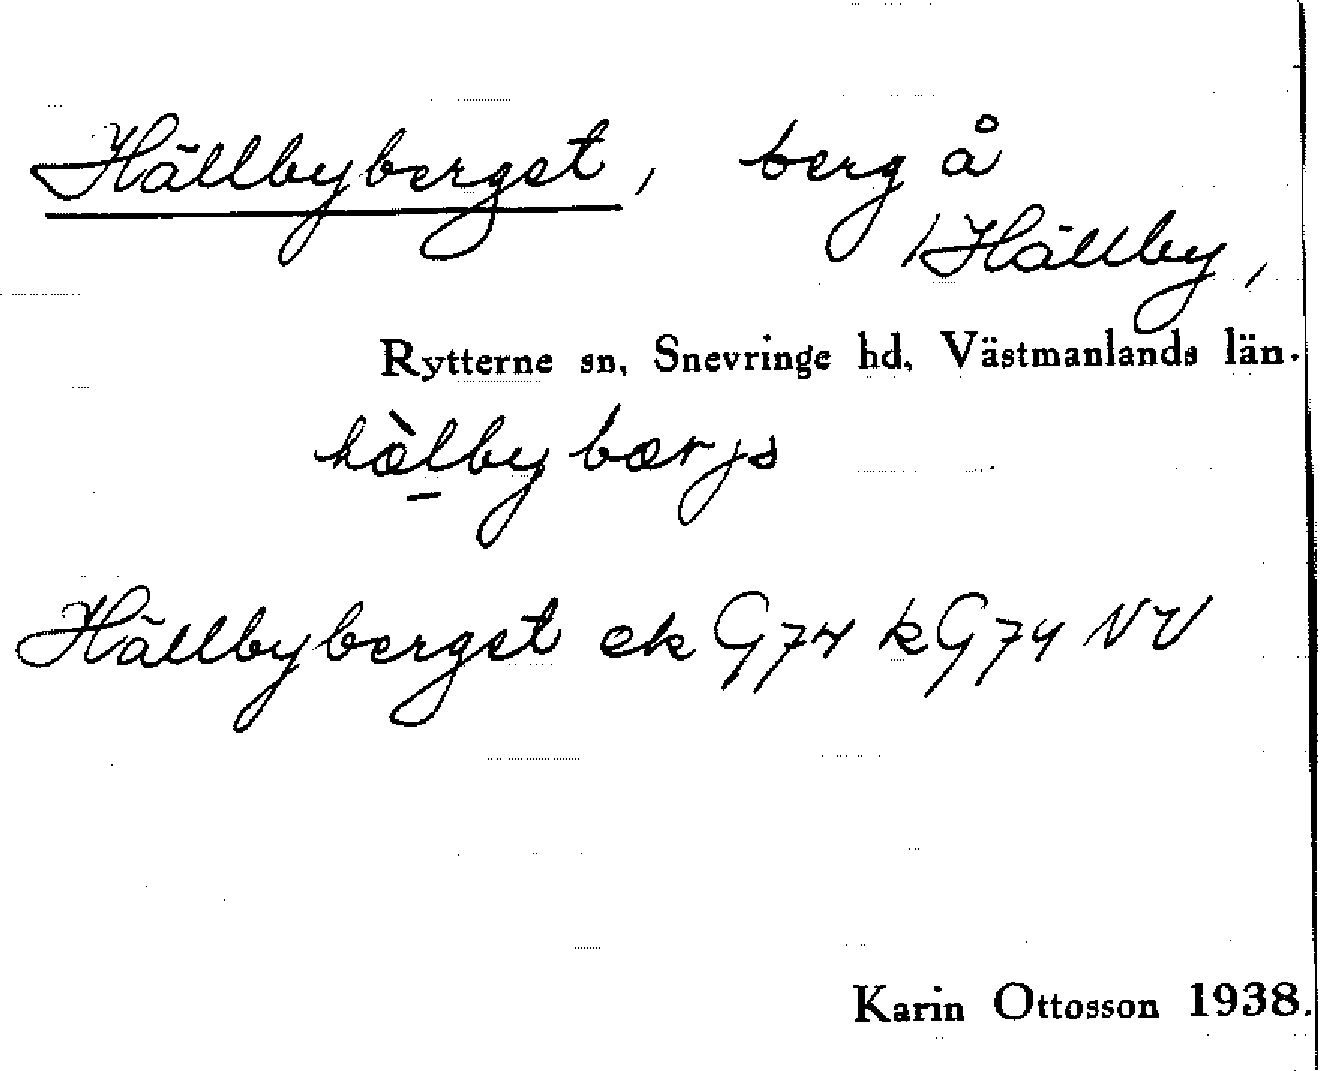 Hällbyberget, berg å
Hällby,
Rytterne sn, Snevringe hd, Västmanlands län.
hæ̀lbybærjs
Hällbyberget ek G74 kG74 NV
Karin Ottosson 1938.